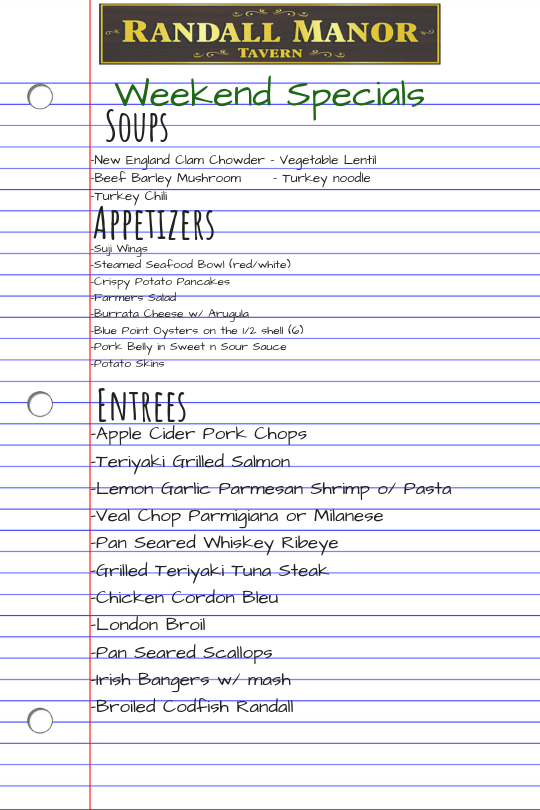 RANDALL MANOR
TAVERN
Weekend Specials
Soups
-New England Clam Chowder - Vegetable Lentil
-Beef Barley Mushroom - Turkey noodle
-Turkey Chili
Appetizers
-Suji Wings
-Steamed Seafood Bowl (red/white)
-Crispy Potato Pancakes
-Farmers Salad
-Burrata Cheese w/ Arugula
-Blue Point Oysters on the 1/2 shell (6)
-Pork Belly in Sweet n Sour Sauce
-Potato Skins
Entrees
-Apple Cider Pork Chops
-Teriyaki Grilled Salmon
-Lemon Garlic Parmesan Shrimp o/ Pasta
-Veal Chop Parmigiana or Milanese
-Pan Seared Whiskey Ribeye
-Grilled Teriyaki Tuna Steak
-Chicken Cordon Bleu
-London Broil
-Pan Seared Scallops
-Irish Bangers w/ mash
-Broiled Codfish Randall